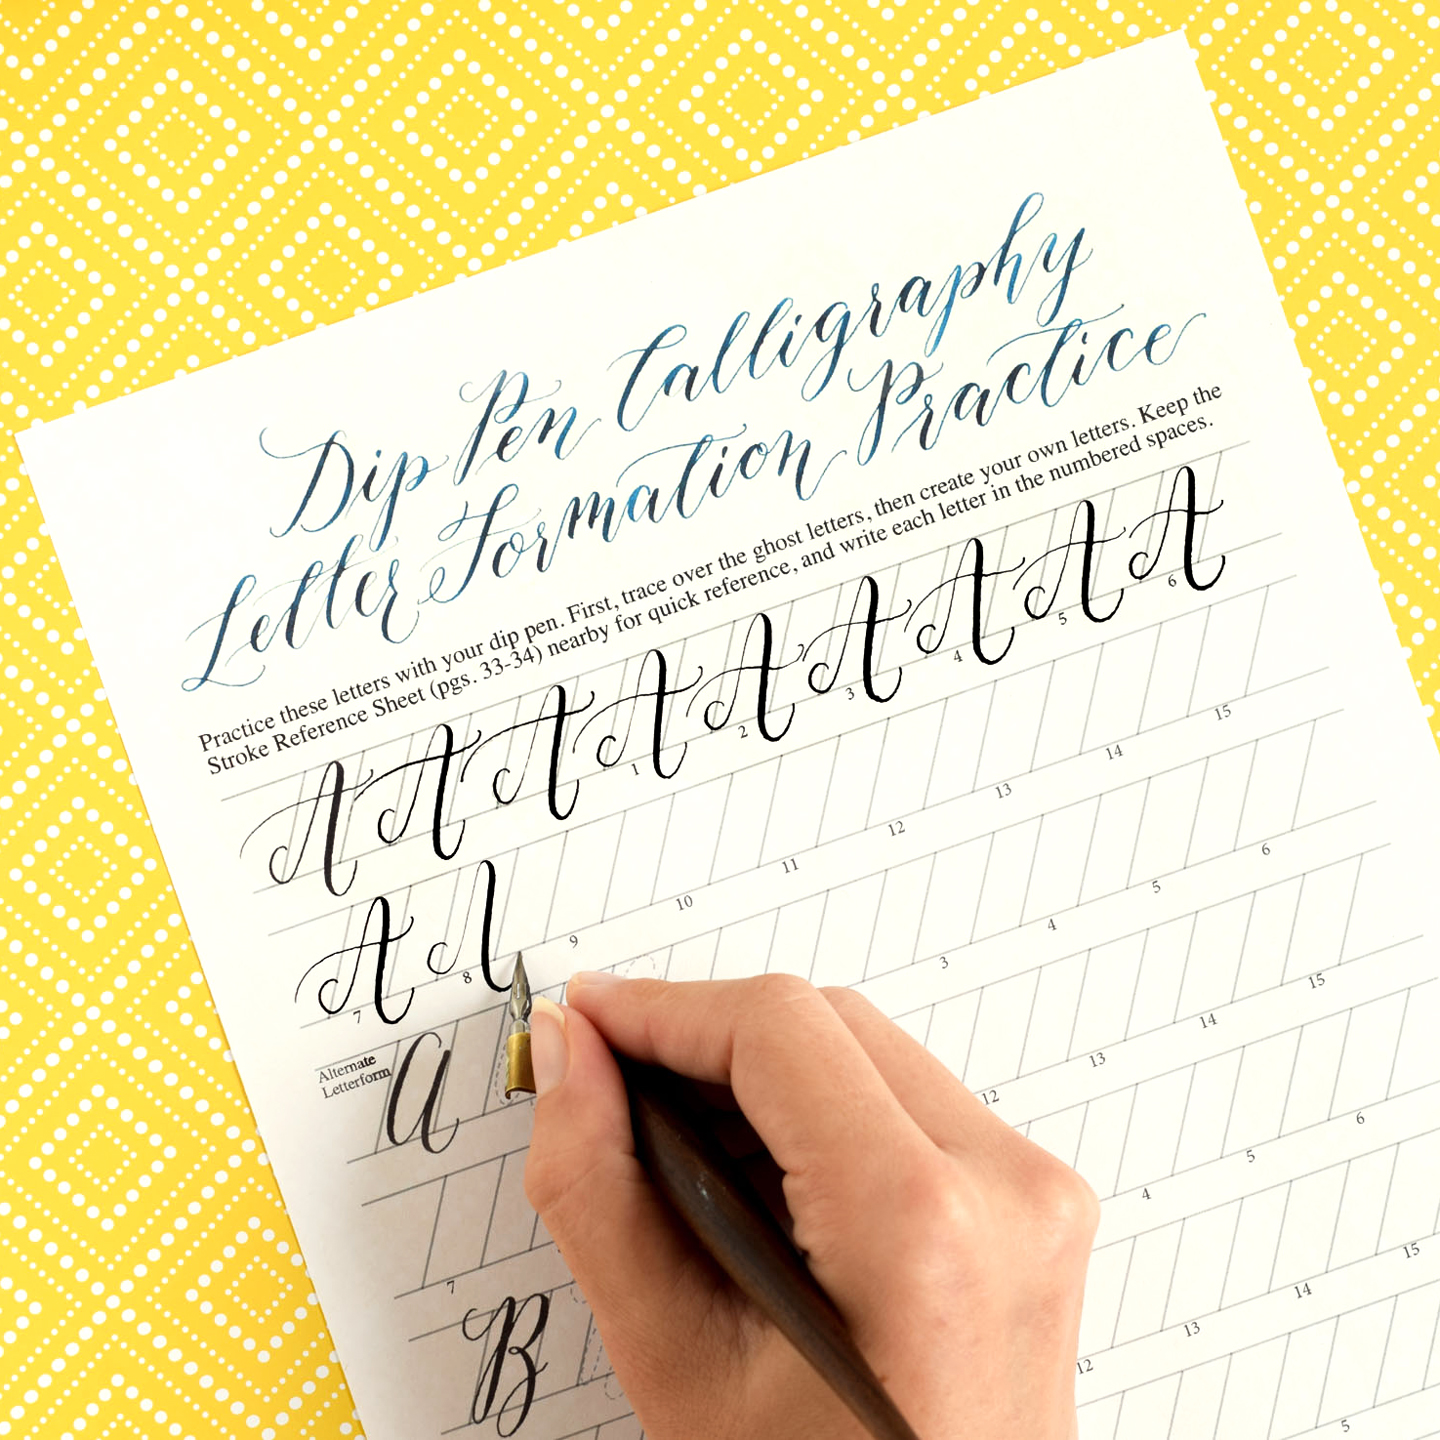 Dip Pen Calligraphy
Letter Formation Practice
Practice these letters with your dip pen. First, trace over the ghost letters, then create your own letters. Keep the
Stroke Reference Sheet (pgs. 33-34) nearby for quick reference, and write each letter in the numbered spaces.
A A A A A A A A A
1 2 3 4 5 6
A
7 8 9 10 11 12 13 14 15
Alternate
Letterform
A
3 4 5 6
7 12 13 14 15
B
4 5 6
12 13 14 15
5